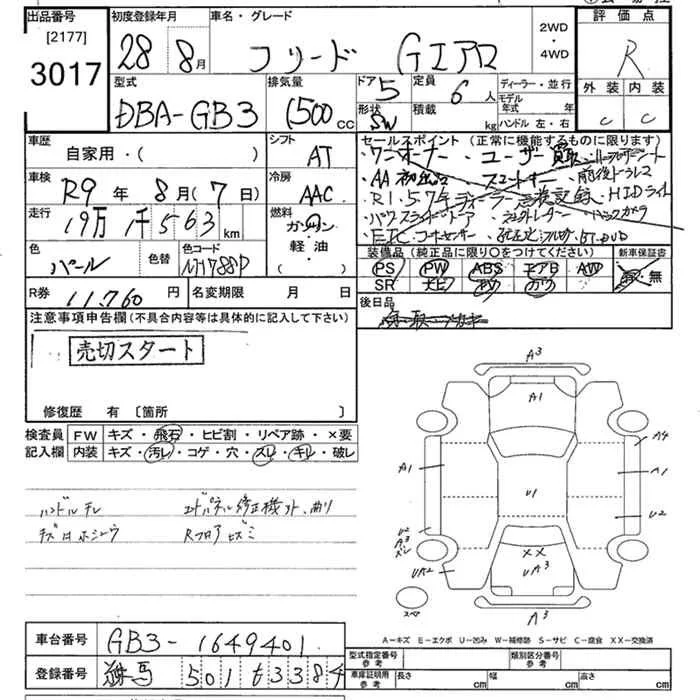 出品番号
[2177]
3017
初度登録年月
28 8月
車名・グレード
フリード Gエアロ
2WD
・
4WD
評価点
R
外装 内装
C C
型式
DBA-GB3
排気量
1500cc
ドア
5
定員
6人
形状
SW
積載
kg
ディーラー・並行
モデル年式 年
ハンドル 左・右
車歴
自家用・( )
シフト
AT
車検
R9年 8月(7日)
冷房
AAC
走行
19万 1千563km
燃料
ガソリン
軽油
( )
色
パール
色替
色コード
NH788P
R券
11,760円
名変期限 月 日
セールスポイント (正常に機能するものに限ります)
・ワンオーナー ・ユーザー買取
・AA初出品 スマートキー ・前後ドラレコ
・HIDライト
・パワースライドドア ・バックカメラ
・ETC・コーナーセンサー
装備品(純正品に限り○をつけてください)
新車保証書
PS PW ABS エアB AW
SR ナビ TV カワ
有・無
後日品
注意事項申告欄(不具合内容等は具体的に記入して下さい)
売切スタート
修復歴 有 〔箇所 〕
検査員記入欄
FW キズ・飛石・ヒビ割・リペア跡・×要
内装 キズ・汚レ・コゲ・穴・スレ・キレ・破レ
ハンドルチレ エンドパネル修正機ツメ、曲り
RフロアヒズミA3
A1
A4
A1
A1
U1
U2
U2
A3
XX
UA2
UA3
A3
スペア
A-キズ E-エクボ U-凹み W-補修跡 S-サビ C-腐食 XX-交換済
車台番号
GB3-1649401
登録番号
練馬 501 も3384
型式指定番号
参考
類別区分番号
参考
車庫証明用
参考
長さ cm 幅 cm 高さ cm